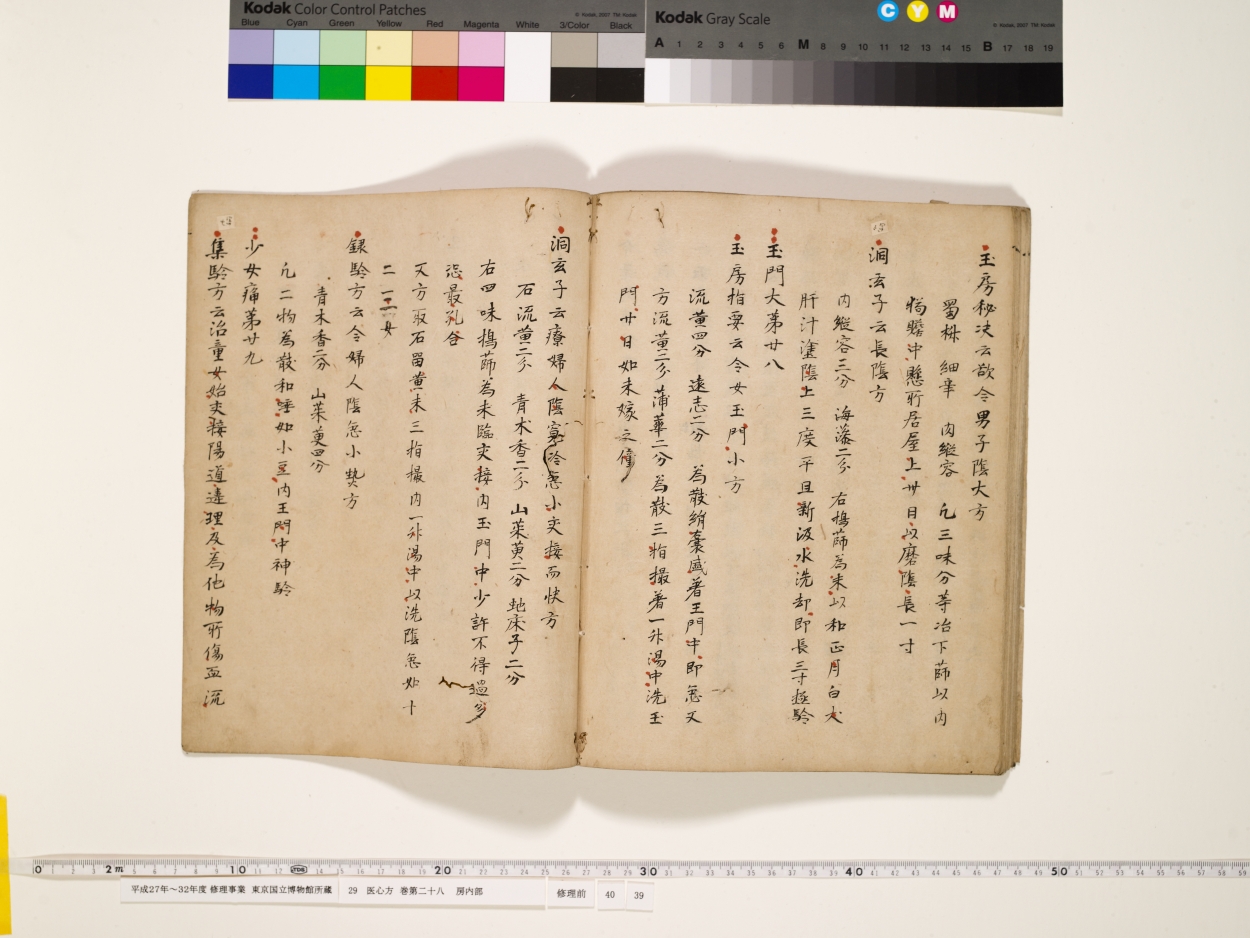 Kodak Color Control Patches
© Kodak, 2007 TM: Kodak
Blue Cyan Green Yellow Red Magenta White 3/Color Black
Kodak Gray Scale
C Y M
© Kodak, 2007 TM: Kodak
A 1 2 3 4 5 6 M 8 9 10 11 12 13 14 15 B 17 18 19
玉房秘决云欲令男子陰大方
蜀椒 細辛 肉縦容 凡三味分等冶下篩以内
狗膽中懸所居屋上卅日以磨陰長一寸
洞玄子云長陰方
肉縦容三分 海藻二分 右搗篩為末以和正月白犬
肝汁塗陰上三度平旦新汲水洗却即長三寸極驗
玉門大第廿八
玉房指要云令女玉門小方
流黄四分 遠志二分 為散絹囊盛著玉門中即急又
方流黄二分蒲華二分為散三指撮著一升湯中洗玉
門廿日如未嫁之僮
洞玄子云療婦人陰寛冷急小交接而快方
石流黄二分 青木香二分 山茱萸二分 虵床子二分
右四味搗篩為末臨交接内玉門中少許不得過多
恐最孔合
又方取石留黄末三指撮内一升湯中以洗陰急如十
二三女
録驗方云令婦人陰急小熱方
青木香二分 山茱萸四分
凡二物為散和唾如小豆内玉門中神驗
少女痛第廿九
集驗方云治童女始交接陽道違理及為他物所傷血流
0 2m 10 20 30 40 50
平成27年～32年度 修理事業 東京国立博物館所蔵 29 医心方 巻第二十八 房内部 修理前 40 39